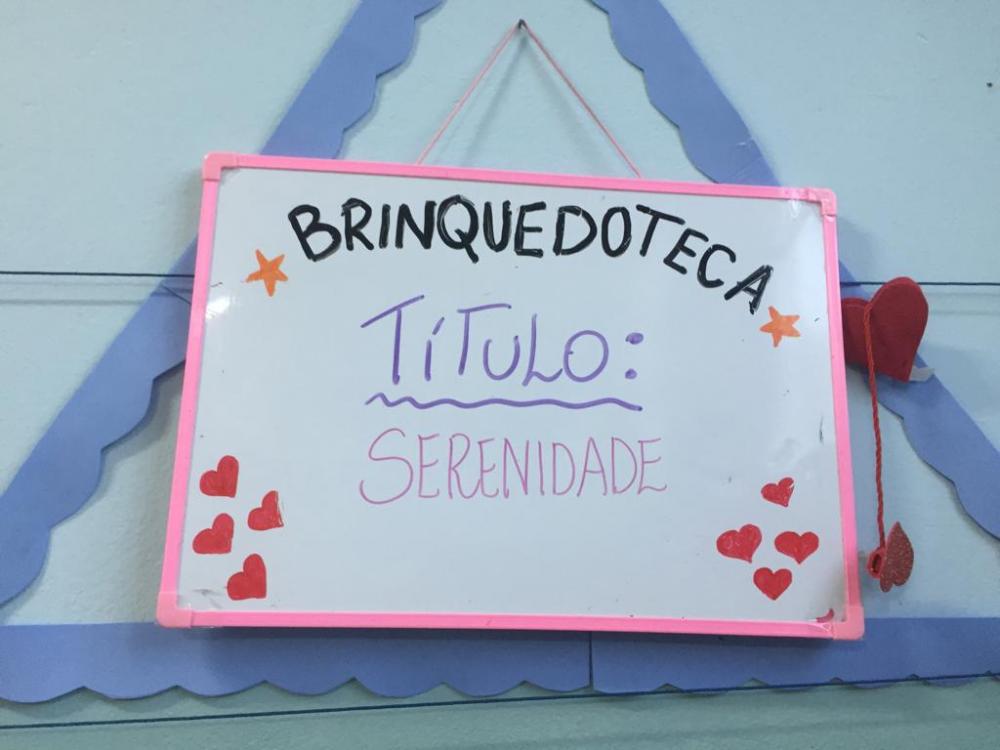 BRINQUEDOTECA
TÍTULO:
SERENIDADE